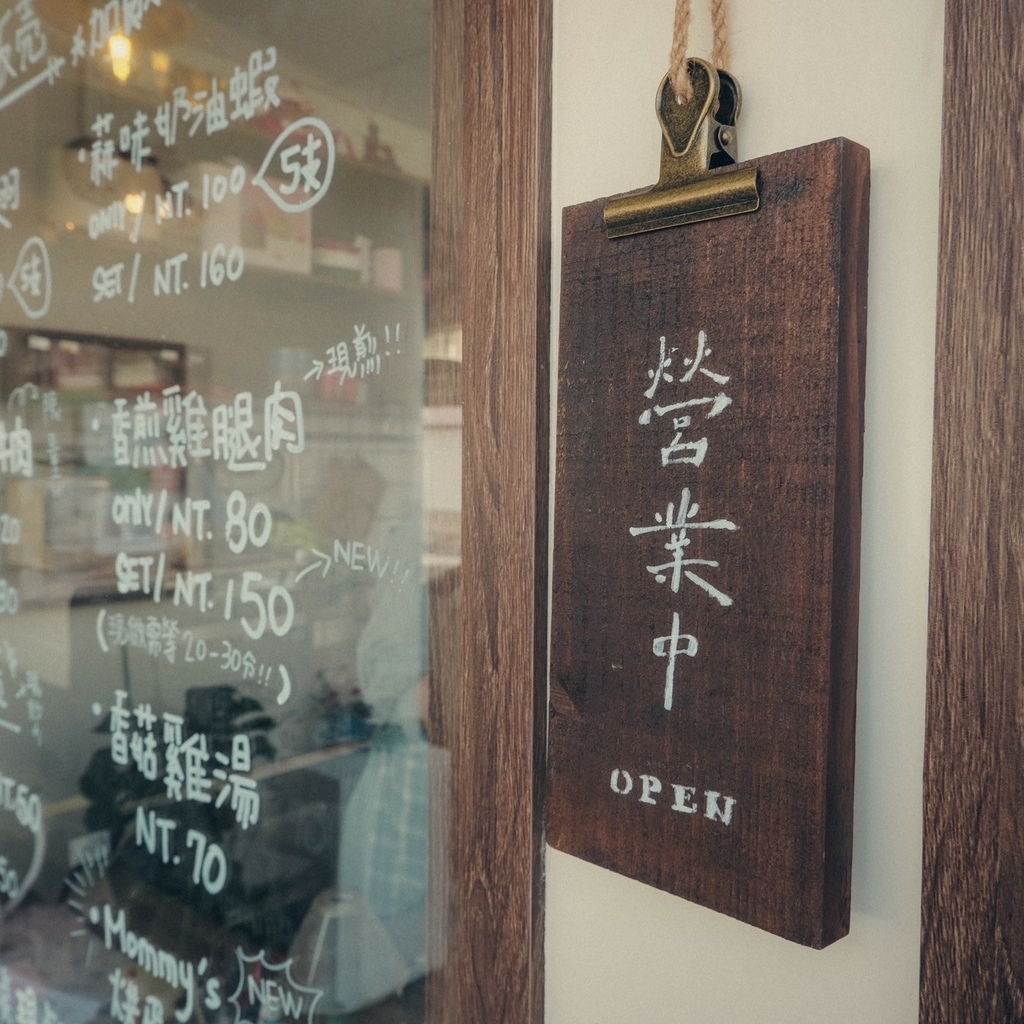 蒜味奶油蝦
only/ NT. 100
5支
SET/ NT. 160
5支
→現煎!!
・香煎雞腿肉
only/ NT. 80
SET/ NT. 150
→NEW!!
(現做需等20-30分!!)
・香菇雞湯
NT. 70
・Mommy's
NEW
營業中
OPEN